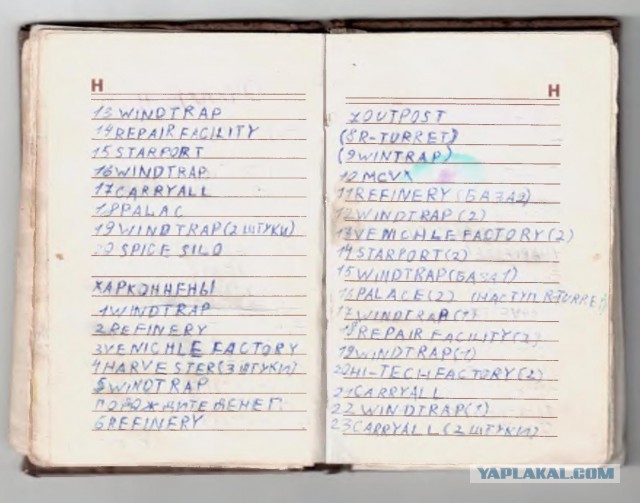 Н
13 WINDTRAP
14 REPAIR FACILITY
15 STARPORT
16 WINDTRAP
17 CARRYALL
18 PALAC
19 WINDTRAP (2 ШТУКИ)
20 SPICE SILO
ХАРКОННЕНЫ
1 WINDTRAP
2 REFINERY
3 VENICHLE FACTORY
4 HARVESTER (3 ШТУКИ)
5 WINDTRAP
ПОДОЖДИТЕ ДЕНЕГ
6 REFINERY
Н
7 OUTPOST
(8 R-TURRET)
(9 WINTRAP)
10 MCV
11 REFINERY (БАЗА 2)
12 WINDTRAP (2)
13 VEMCHLE FACTORY (2)
14 STARPORT (2)
15 WINDTRAP (БАЗА 1)
16 PALACE (2) (НАСТУП R-TURRET)
17 WINDTRAP (1)
18 REPAIR FACILITY (2)
19 WINDTRAP (1)
20 HI-TECH FACTORY (2)
21 CARRYALL
22 WINDTRAP (1)
23 CARRYALL (2 ШТУКИ)
YAPLAKAL.COM